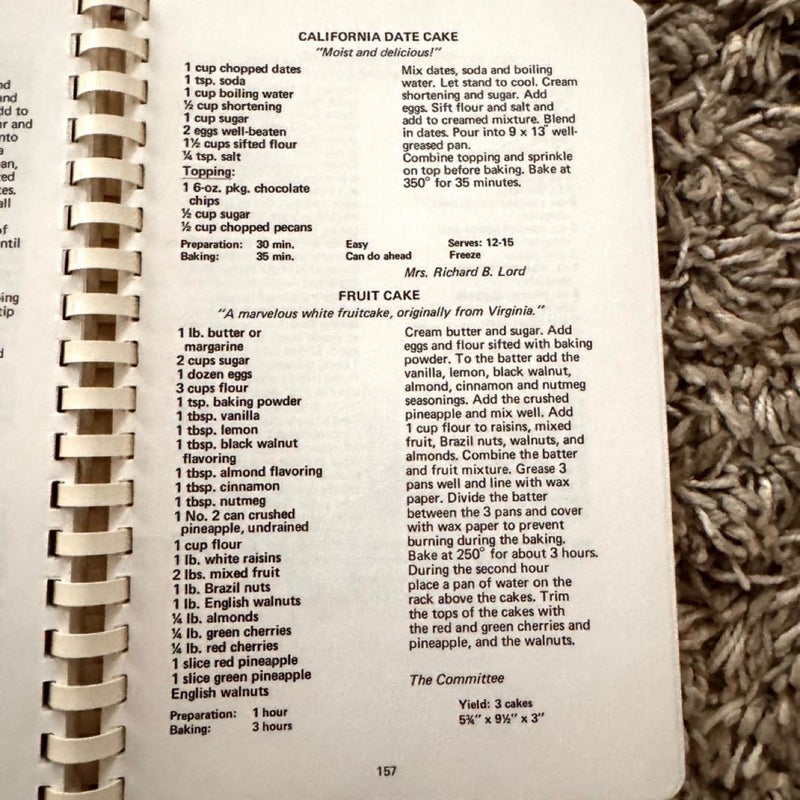 nd
and
dd to
ur and
nto
a
an,
ed
tes.
all
of
ntil
ing
tip
d
CALIFORNIA DATE CAKE
"Moist and delicious!"
1 cup chopped dates
1 tsp. soda
1 cup boiling water
½ cup shortening
1 cup sugar
2 eggs well-beaten
1½ cups sifted flour
¼ tsp. salt
Topping:
1 6-oz. pkg. chocolate
chips
½ cup sugar
½ cup chopped pecans
Mix dates, soda and boiling
water. Let stand to cool. Cream
shortening and sugar. Add
eggs. Sift flour and salt and
add to creamed mixture. Blend
in dates. Pour into 9 x 13 well-
greased pan.
Combine topping and sprinkle
on top before baking. Bake at
350° for 35 minutes.
Preparation: 30 min. Easy Serves: 12-15
Baking: 35 min. Can do ahead Freeze
Mrs. Richard B. Lord
FRUIT CAKE
"A marvelous white fruitcake, originally from Virginia."
1 lb. butter or
margarine
2 cups sugar
1 dozen eggs
3 cups flour
1 tsp. baking powder
1 tbsp. vanilla
1 tbsp. lemon
1 tbsp. black walnut
flavoring
1 tbsp. almond flavoring
1 tbsp. cinnamon
1 tbsp. nutmeg
1 No. 2 can crushed
pineapple, undrained
1 cup flour
1 lb. white raisins
2 lbs. mixed fruit
1 lb. Brazil nuts
1 lb. English walnuts
¼ lb. almonds
¼ lb. green cherries
¼ lb. red cherries
1 slice red pineapple
1 slice green pineapple
English walnuts
Cream butter and sugar. Add
eggs and flour sifted with baking
powder. To the batter add the
vanilla, lemon, black walnut,
almond, cinnamon and nutmeg
seasonings. Add the crushed
pineapple and mix well. Add
1 cup flour to raisins, mixed
fruit, Brazil nuts, walnuts, and
almonds. Combine the batter
and fruit mixture. Grease 3
pans well and line with wax
paper. Divide the batter
between the 3 pans and cover
with wax paper to prevent
burning during the baking.
Bake at 250° for about 3 hours.
During the second hour
place a pan of water on the
rack above the cakes. Trim
the tops of the cakes with
the red and green cherries and
pineapple, and the walnuts.
The Committee
Preparation: 1 hour
Baking: 3 hours
Yield: 3 cakes
5¾" x 9½" x 3"
157